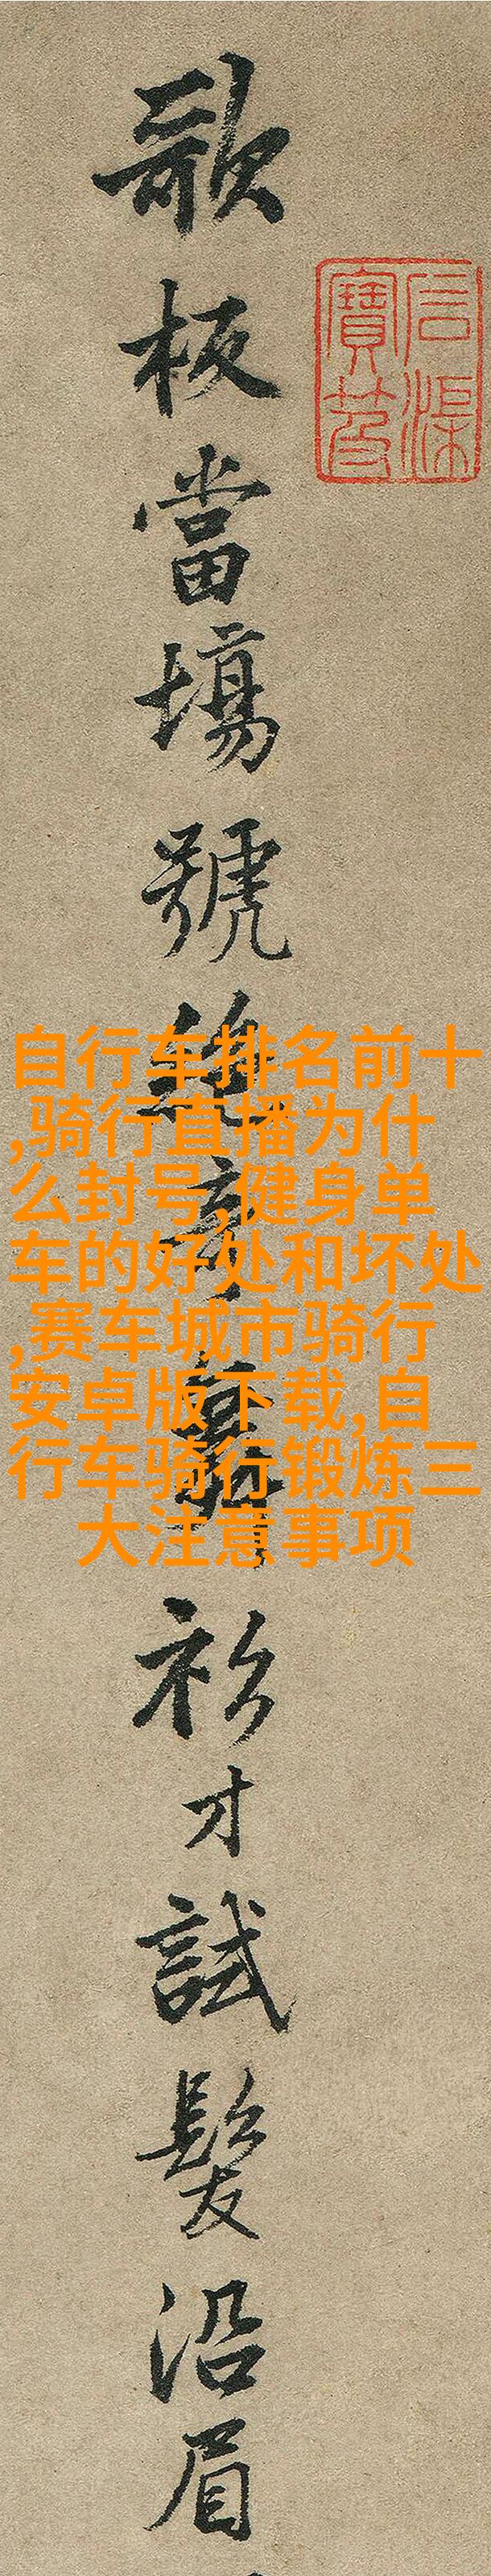 歌板當場號絕奇舞衫才試髮沿眉
石渠寶笈
自行车排名前十
,骑行直播为什
么封号,健身单
车的好处和坏处
,赛车城市骑行
安卓版下载,自
行车骑行锻炼三
大注意事项